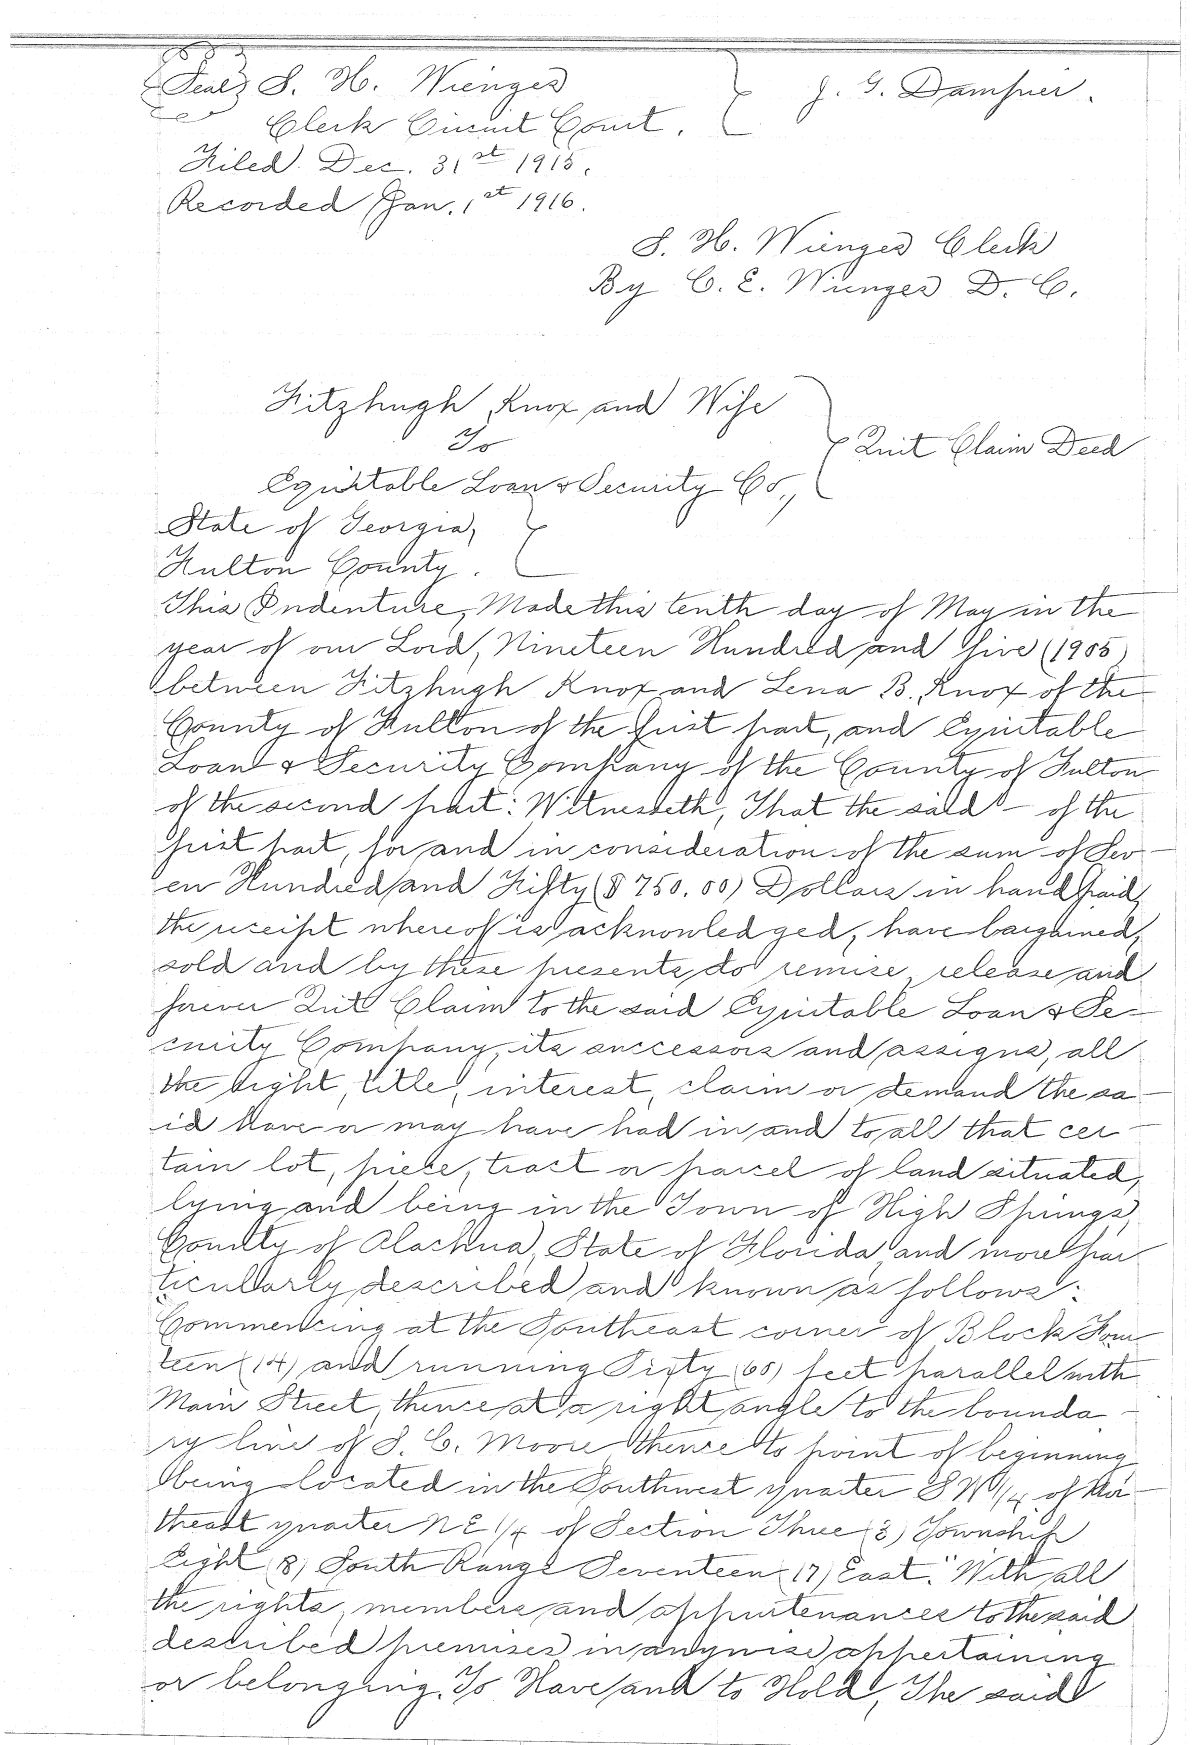 {Seal} S. H. Wienges } J. G. Dampier.
Clerk Circuit Court.
Filed. Dec. 31st 1915.
Recorded Jan. 1st 1916.
S. H. Wienges Clerk
By C. E. Wienges D. C.
Fitzhugh Knox and Wife
To } Quit Claim Deed
Equitable Loan & Security Co.,
State of Georgia, }
Fulton County.
This Indenture, Made this tenth day of May in the
year of our Lord, Nineteen Hundred and five (1905)
between Fitzhugh Knox and Lena B. Knox of the
County of Fulton of the first part, and Equitable
Loan & Security Company of the County of Fulton
of the second part: Witnesseth, That the said - of the
first part, for and in consideration of the sum of Sev-
en Hundred and Fifty ($750.00) Dollars in hand paid,
the receipt whereof is acknowledged, have bargained,
sold and by these presents do remise, release and
forever Quit Claim to the said Equitable Loan & Se-
curity Company, its successors and assigns, all
the right, title, interest, claim or demand the sa-
id have or may have had in and to all that cer-
tain lot, piece, tract or parcel of land situated,
lying and being in the Town of High Springs,
County of Alachua, State of Florida, and more par-
ticularly described and known as follows:
"Commencing at the Southeast corner of Block Four-
teen (14) and running Sixty (60) feet parallel with
Main Street, thence at a right angle to the bounda-
ry line of S. C. Moore thence to point of beginning
being located in the Southwest quarter SW 1/4 of Nor-
theast quarter NE 1/4 of Section Three (3) Township
Eight (8) South Range Seventeen (17) East." With all
the rights, members and appurtenances to the said
described premises in anywise appertaining
or belonging. To Have and to Hold, The said